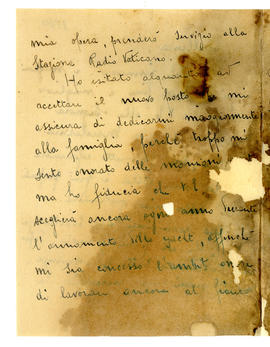 mia opera, prenderò servizio alla
Stazione Radio Vaticano.
Ho esitato alquanto ad
accettare il nuovo posto e mi
assicura di dedicarmi maggiormente
alla famiglia, perché troppo mi
sento onorato delle
ma ho fiducia che V.E.
sceglierà ancora ogni anno
l'armamento dello yacht, affinché
mi sia concesso l'ambito onore
di lavorare ancora al fianco